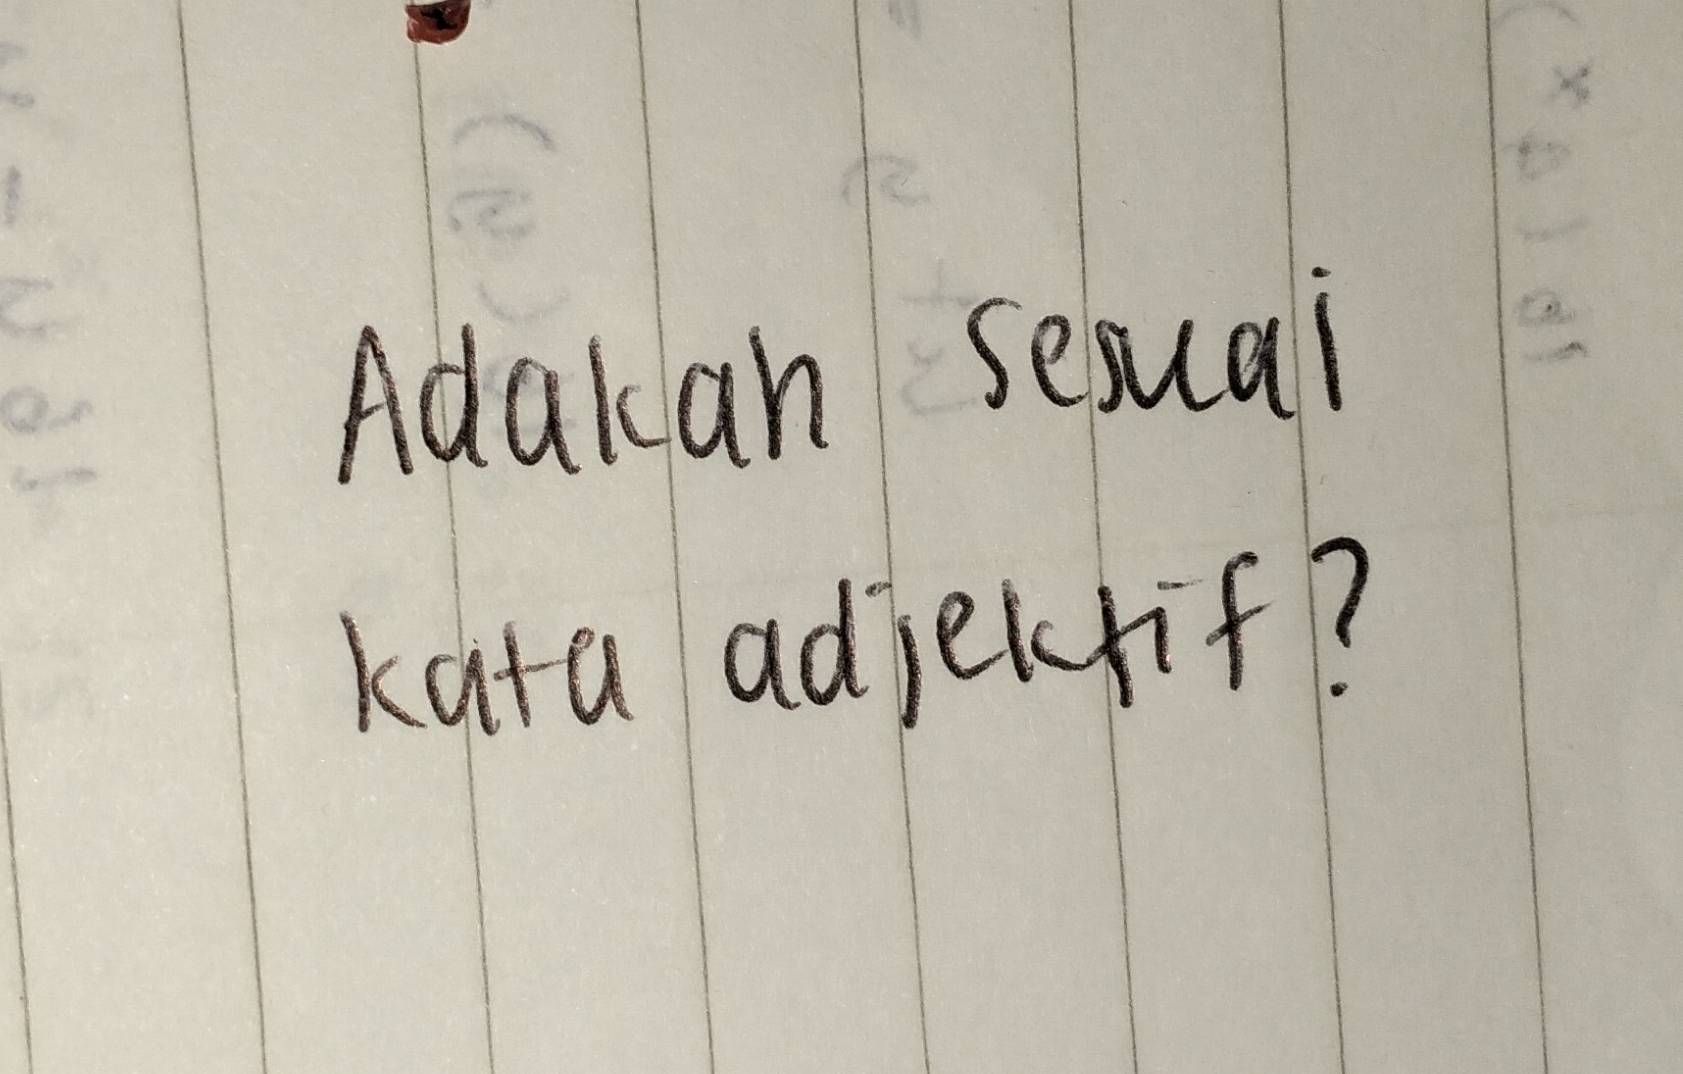 Adakah sesuai
kata adjektif?